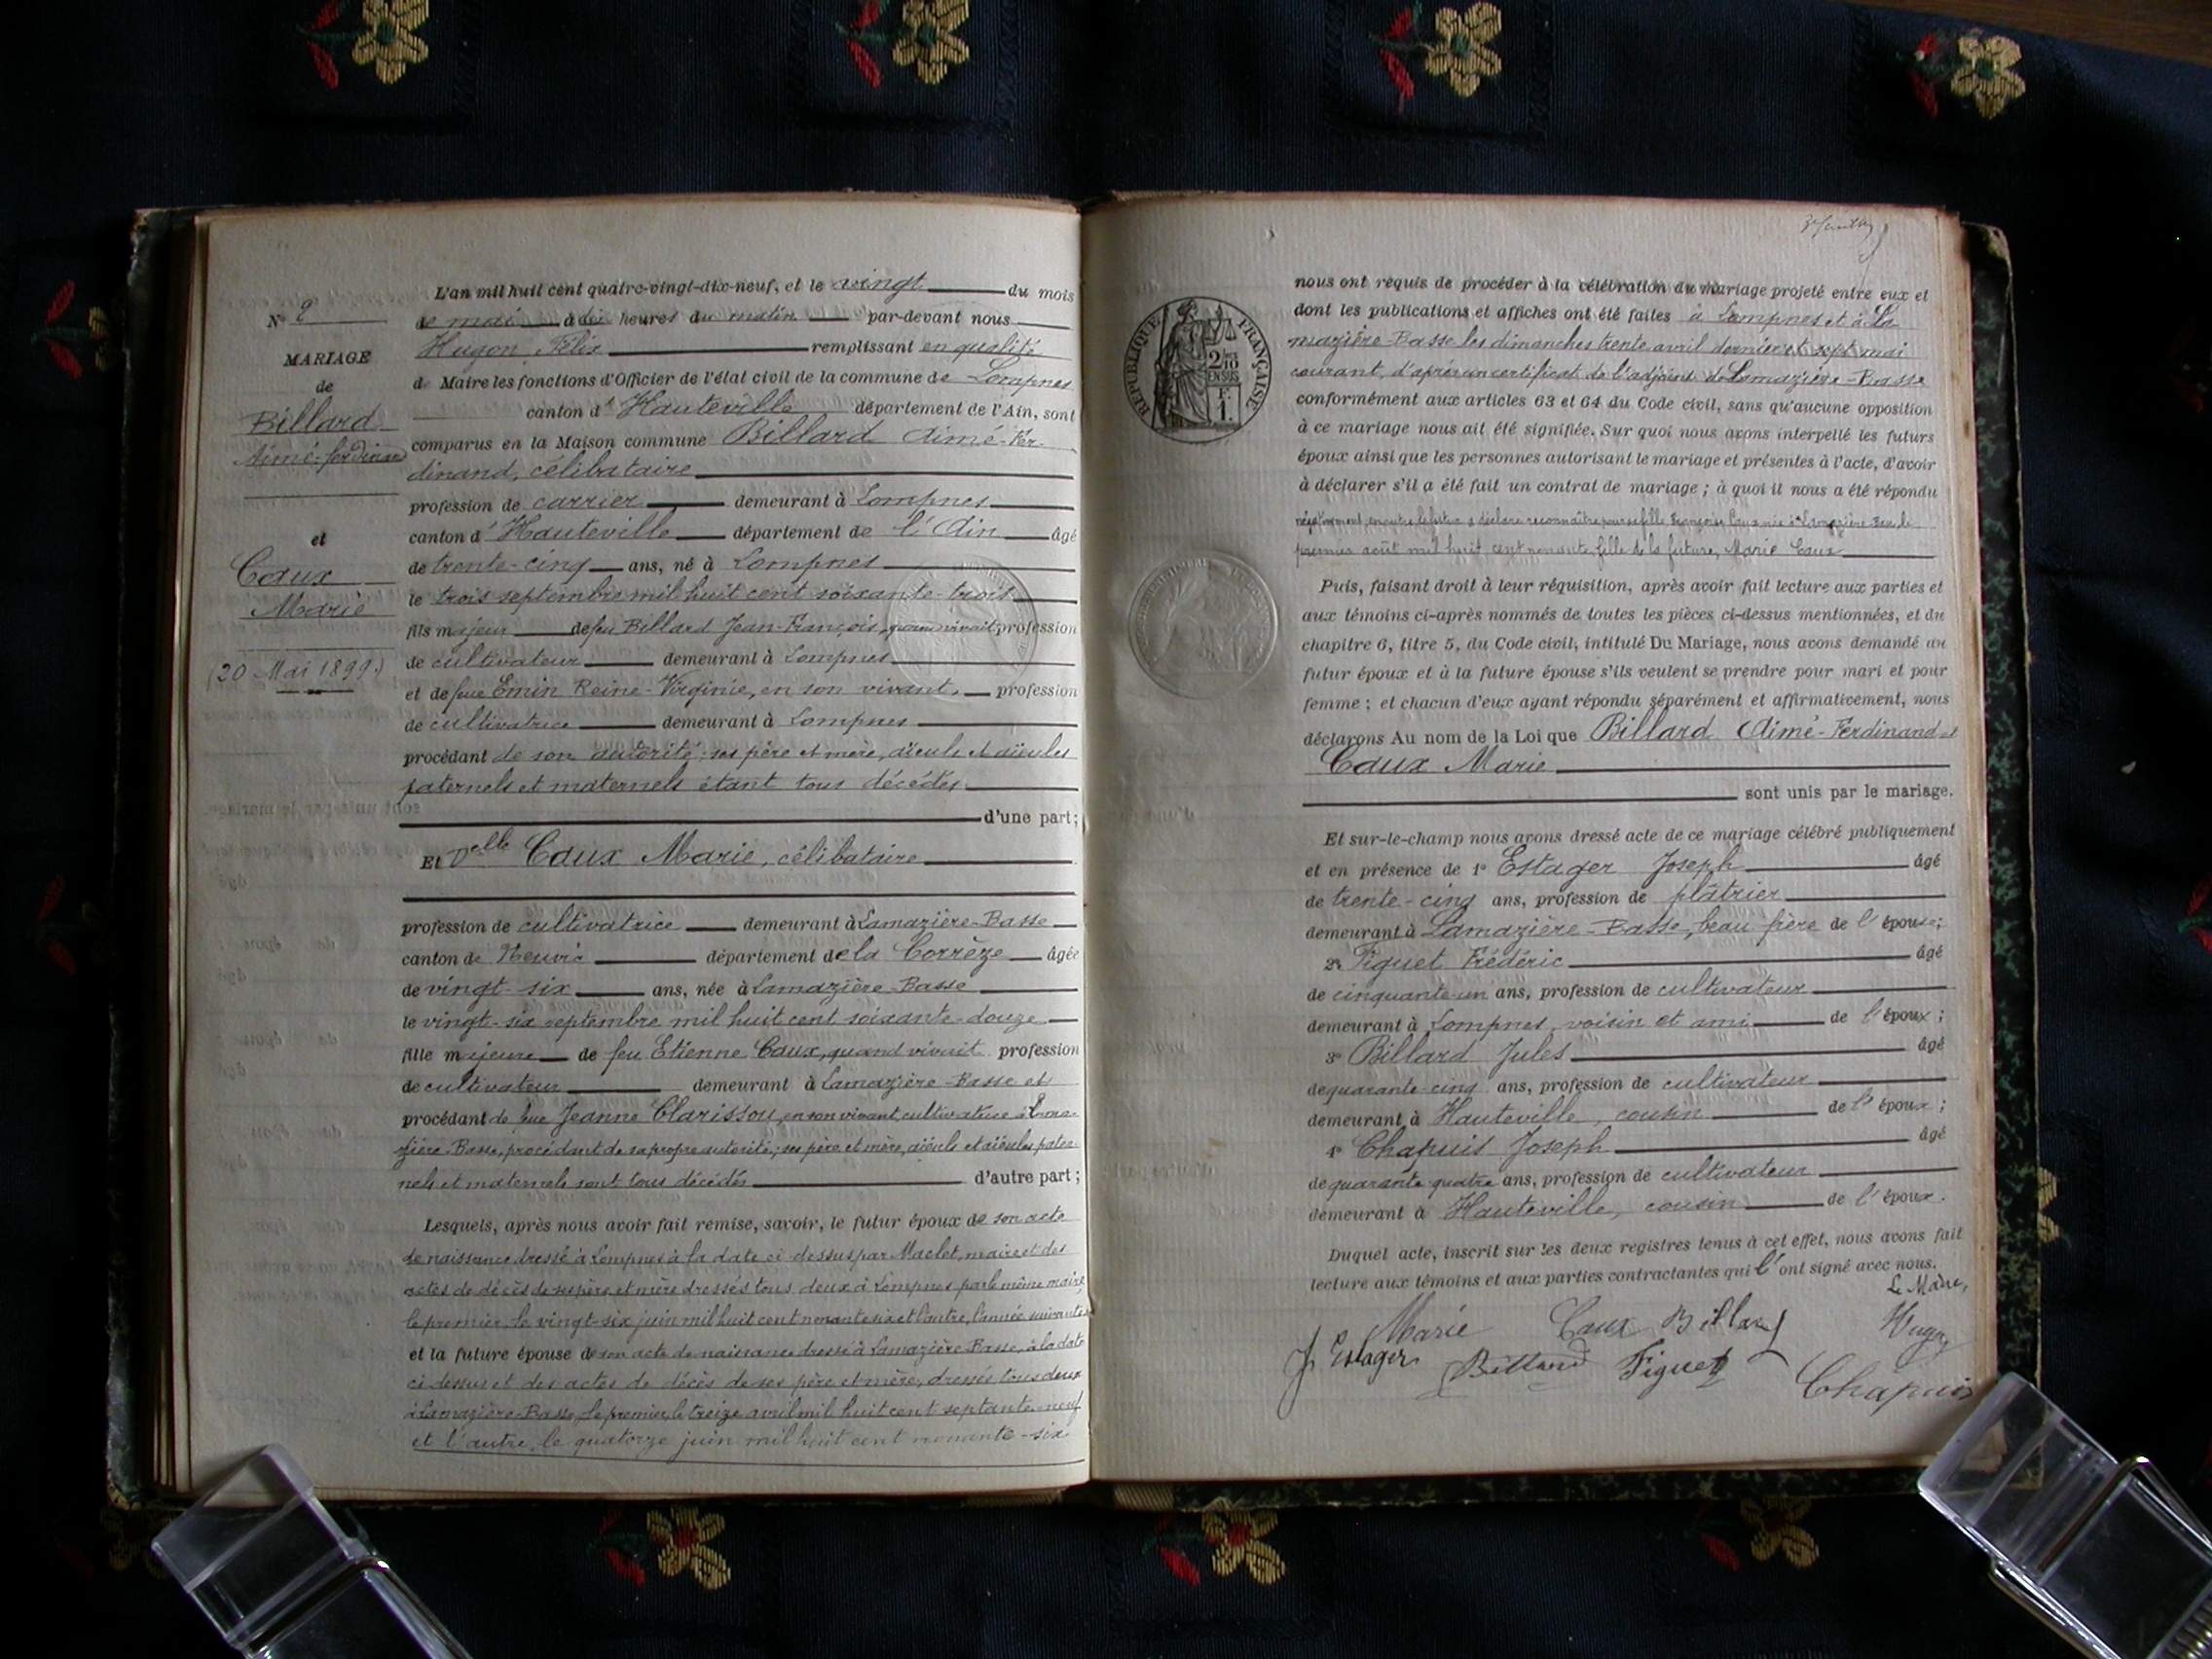 N° 2
MARIAGE
de
Billard
Aimé-Ferdinand
et
Caux
Marie
(20 Mai 1899)
L'an mil huit cent quatre-vingt-dix-neuf, et le vingt du mois
de mai à dix heures du matin par-devant nous
Hugon Félix remplissant en qualité
de Maire les fonctions d'Officier de l'état civil de la commune de Lompnes
canton d' Hauteville département de l'Ain, sont
comparus en la Maison commune Billard Aimé-Fer-
dinand, célibataire
profession de carrier demeurant à Lompnes
canton d' Hauteville département de l'Ain âgé
de trente-cinq ans, né à Lompnes
le trois septembre mil huit cent soixante-trois
fils majeur de feu Billard Jean-François, quand vivait, profession
de cultivateur demeurant à Lompnes
et de feue Emin Reine-Virginie, en son vivant, profession
de cultivatrice demeurant à Lompnes
procédant de son autorité, ses père et mère, aïeuls et aïeules
paternels et maternels étant tous décédés
d'une part ;
Et Delle Caux Marie, célibataire
profession de cultivatrice demeurant à Lamazière-Basse
canton de Neuvic département de la Corrèze âgée
de vingt-six ans, née à Lamazière-Basse
le vingt-six septembre mil huit cent soixante-douze
fille majeure de feu Etienne Caux, quand vivait profession
de cultivateur demeurant à Lamazière-Basse et
procédant de feue Jeanne Clarissou, en son vivant, cultivatrice à Lama-
zière-Basse, procédant de sa propre autorité ; ses père et mère, aïeuls et aïeules pater-
nels et maternels sont tous décédés d'autre part ;
Lesquels, après nous avoir fait remise, savoir, le futur époux de son acte
de naissance dressé à Lompnes à la date ci-dessus par Maclet, maire et des
actes de décès de ses père et mère dressés tous deux à Lompnes par le même maire,
le premier, le vingt-six juin mil huit cent nonante six et l'autre, l'année suivante
et la future épouse de son acte de naissance dressé à Lamazière-Basse, à la date
ci-dessus et des actes de décès de ses père et mère, dressés tous deux
à Lamazière-Basse, le premier, le treize avril mil huit cent septante-neuf
et l'autre, le quatorze juin mil huit cent nonante-six
RÉPUBLIQUE FRANÇAISE
2/10
EN SUS
F.
1.
nous ont requis de procéder à la célébration du mariage projeté entre eux et
dont les publications et affiches ont été faites à Lompnes et à La
mazière-Basse les dimanches trente avril dernier et sept mai
courant, d'après un certificat de l'adjoint de Lamazière-Basse
conformément aux articles 63 et 64 du Code civil, sans qu'aucune opposition
à ce mariage nous ait été signifiée. Sur quoi nous avons interpellé les futurs
époux ainsi que les personnes autorisant le mariage et présentes à l'acte, d'avoir
à déclarer s'il a été fait un contrat de mariage ; à quoi il nous a été répondu
négativement, en outre le futur a déclaré reconnaître pour sa fille Caux née à Lamazière-Basse le
premier août mil huit cent nonante, fille de la future, Marie Caux
Puis, faisant droit à leur réquisition, après avoir fait lecture aux parties et
aux témoins ci-après nommés de toutes les pièces ci-dessus mentionnées, et du
chapitre 6, titre 5, du Code civil, intitulé Du Mariage, nous avons demandé au
futur époux et à la future épouse s'ils veulent se prendre pour mari et pour
femme ; et chacun d'eux ayant répondu séparément et affirmativement, nous
déclarons Au nom de la Loi que Billard Aimé-Ferdinand et
Caux Marie
sont unis par le mariage.
Et sur-le-champ nous avons dressé acte de ce mariage célébré publiquement
et en présence de 1° Estager Joseph âgé
de trente-cinq ans, profession de plâtrier
demeurant à Lamazière-Basse, beau frère de l'épouse ;
2° Figuet Frédéric âgé
de cinquante-un ans, profession de cultivateur
demeurant à Lompnes, voisin et ami de l'époux ;
3° Billard Jules âgé
de quarante-cinq ans, profession de cultivateur
demeurant à Hauteville, cousin de l'époux ;
4° Chapuis Joseph âgé
de quarante quatre ans, profession de cultivateur
demeurant à Hauteville, cousin de l'époux.
Duquel acte, inscrit sur les deux registres tenus à cet effet, nous avons fait
lecture aux témoins et aux parties contractantes qui l'ont signé avec nous.
Le Maire,
Marie Caux Billard Hugon
J. Estager Billard Figuet Chapuis